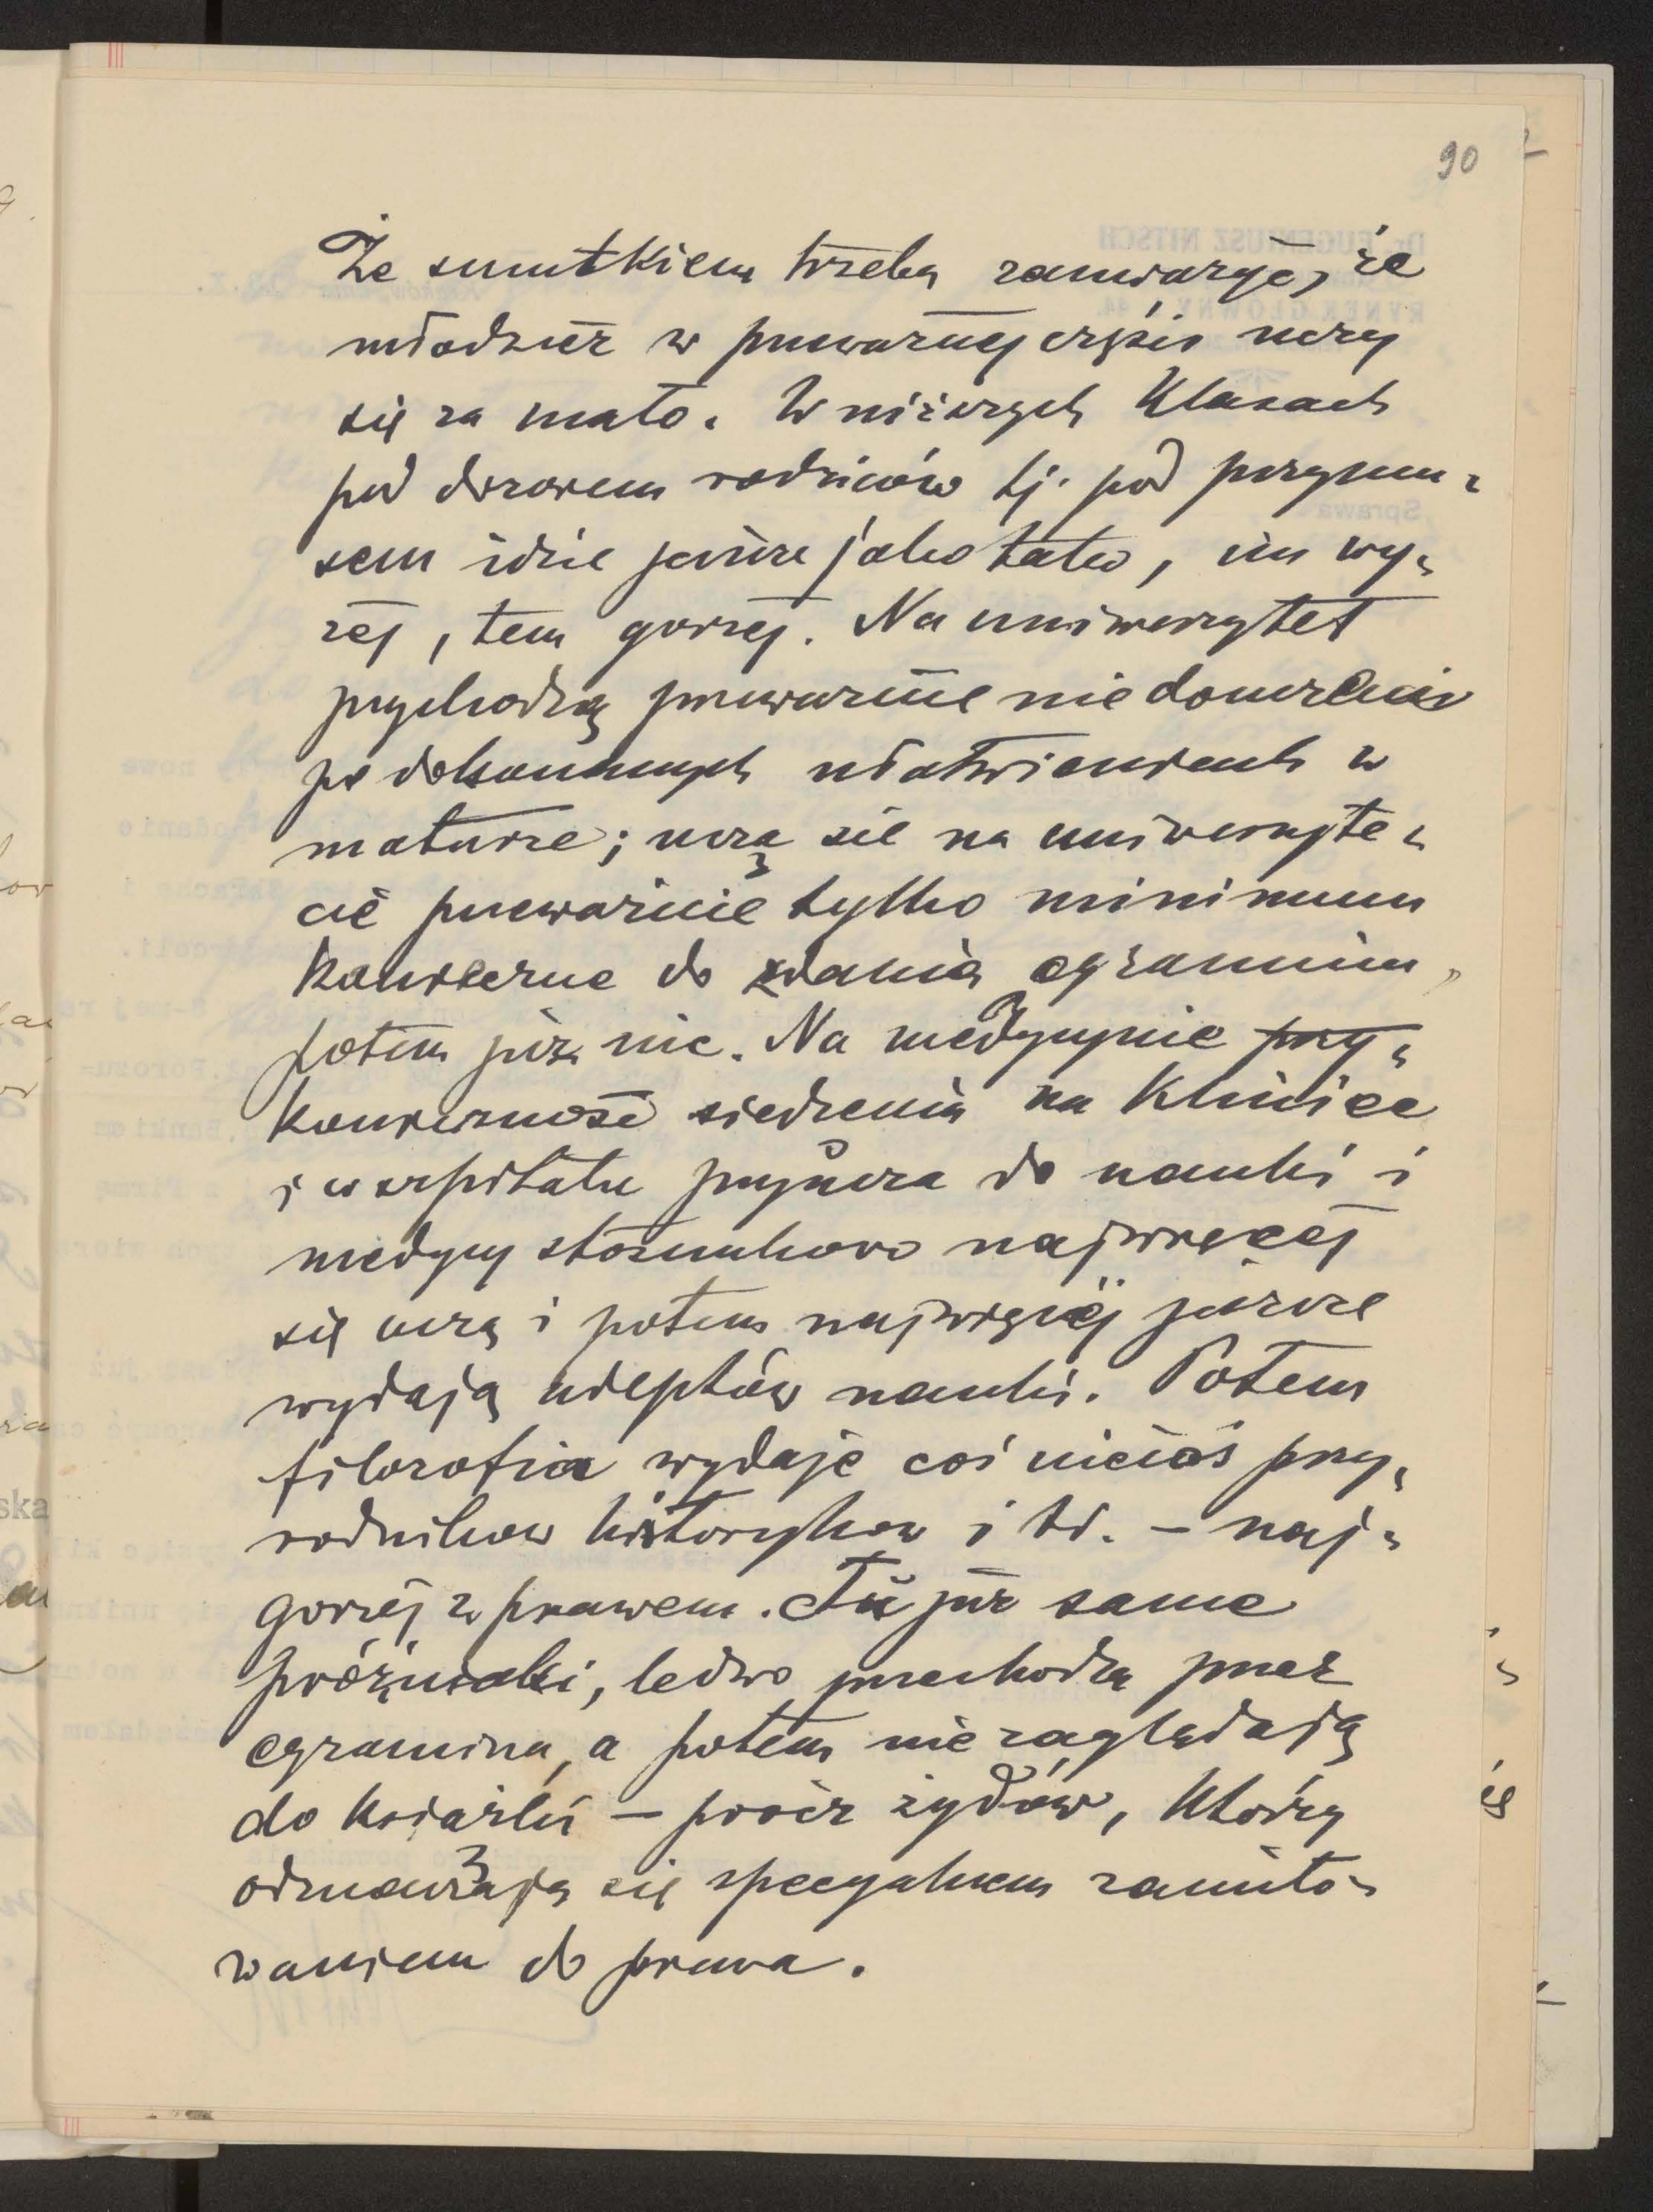 90
Ze smutkiem trzeba zauważyć, że
młodzież w przeważnej części uczy
się za mało. W niższych klasach
pod dozorem rodziców tj. pod przymu-
sem idzie jeszcze jako tako, im wy-
żej, tem gorzej. Na uniwersytet
przychodzą przeważnie niedouczeni
po dokonanych ułatwieniach w
maturze; uczą się na uniwersyte-
cie przeważnie tylko minimum
konieczne do zdania egzaminu,
potem już nic. Na medycynie przy-
konieczność siedzenia na klinice
i w szpitalu przyucza do nauki i
medycy stosunkowo najwięcej
się uczą i potem najwięcej jeszcze
wydają adeptów nauki. Potem
filozofia wydaje coś niecoś przy-
rodników historyków i td. – naj-
gorzej z prawem. Tu już same
próżniaki, ledwo przechodzą przez
egzamina, a potem nie zaglądają
do książki – prócz żydów, którzy
odznaczają się specyalnem zamiło-
waniem do prawa.